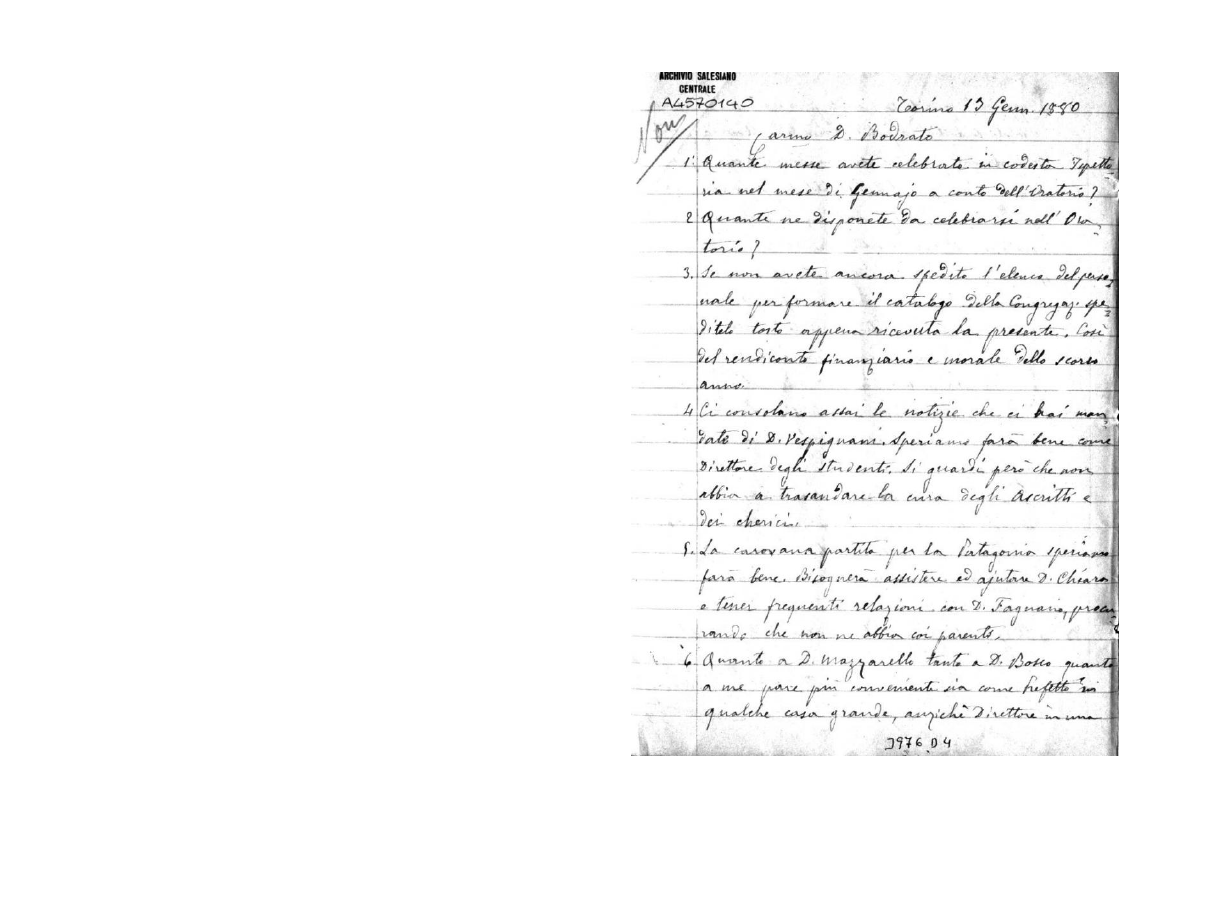 ARCHIVIO SALESIANO
CENTRALE
A4570140
Torino 13 Genn. 1880
Carmo D. Bodrato
1. Quante messe avete celebrato in codesta Ispetto
ria nel mese di Gennajo a conto dell'Oratorio?
2 Quante ne disponete da celebrarsi nell' Ora-
torio?
3. Se non avete ancora spedito l'elenco del perso-
nale per formare il catalogo della Congregaz. spe-
ditelo tosto appena ricevuta la presente. Così
del rendiconto finanziario e morale dello scorso
anno.
4 Ci consolano assai le notizie che ci hai man-
dato di D. Vespignani. Speriamo farà bene come
Direttore degli studenti. Si guardi però che non
abbia a trasandare la cura degli Ascritti e
dei cherici.
5. La carovana partita per la Patagonia speriamo
farà bene. Bisognerà assistere ed ajutare D. Chiara
e tener frequenti relazioni con D. Fagnano, procu-
rando che non ne abbia coi parenti.
6 Quanto a D. Mazzarello tanto a D. Bosco quanto
a me pare più conveniente sia come Prefetto in
qualche casa grande, anzichè Direttore in una
J976 D4